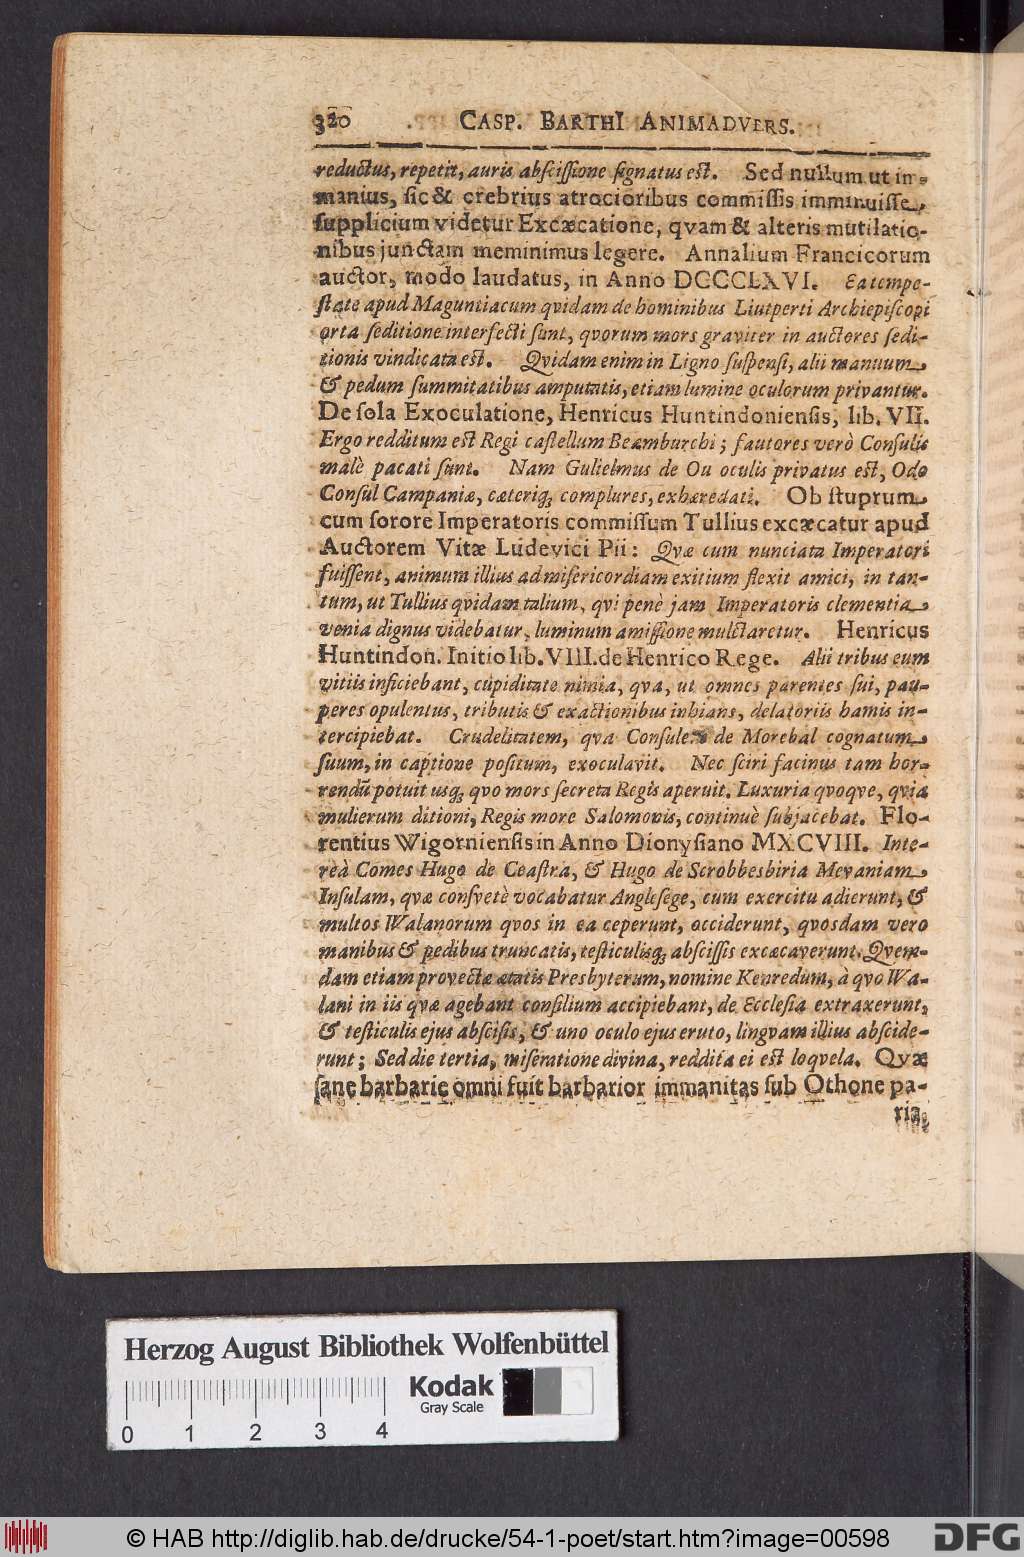 320 CASP. BARTHI ANIMADVERS.
reductus, repetit, auris abſciſſione ſignatus eſt. Sed nullum ut in-
manius, ſic & crebrius atrocioribus commiſſis imminuiſſe
ſupplicium videtur Excæcatione, qvam & alteris mutilatio-
nibus junctam meminimus legere. Annalium Francicorum
auctor, modo laudatus, in Anno DCCCLXVI. Ea tempe-
ſtate apud Maguntiacum qvidam de hominibus Liutperti Archiepiſcopi
orta ſeditione interfecti ſunt, qvorum mors graviter in auctores ſedi-
tionis vindicata eſt. Qvidam enim in Ligno ſuſpenſi, alii manuum
& pedum ſummitatibus amputatis, etiam lumine oculorum privantur.
De ſola Exoculatione, Henricus Huntindonienſis, lib. VII.
Ergo redditum eſt Regi caſtellum Beamburchi; fautores verò Conſulis
malè pacati ſunt. Nam Gulielmus de Ou oculis privatus eſt, Odo
Conſul Campaniæ, cæteriq; complures, exhæredati. Ob ſtuprum
cum ſorore Imperatoris commiſſum Tullius excæcatur apud
Auctorem Vitæ Ludevici Pii: Qvæ cum nunciata Imperatori
fuiſſent, animum illius ad miſericordiam exitium flexit amici, in tan-
tum, ut Tullius qvidam talium, qvi penè jam Imperatoris clementia
venia dignus videbatur, luminum amiſſione mulctaretur. Henricus
Huntindon. Initio lib. VIII. de Henrico Rege. Alii tribus eum
vitiis inficiebant, cupiditate nimia, qva, ut omnes parentes ſui, pau-
peres opulentus, tributis & exactionibus inhians, delatoriis hamis in-
tercipiebat. Crudelitatem, qva Conſulem de Morebal cognatum
ſuum, in captione poſitum, exoculavit. Nec ſciri facinus tam hor-
rendũ potuit usq; qvo mors ſecreta Regis aperuit. Luxuria qvoqve, qvia
mulierum ditioni, Regis more Salomonis, continuè ſubjacebat. Flo-
rentius Wigornienſis in Anno Dionyſiano MXCVIII. Inte-
reà Comes Hugo de Ceaſtra, & Hugo de Scrobbesbiria Mevaniam
Inſulam, qvæ conſvetè vocabatur Angleſege, cum exercitu adierunt, &
multos Walanorum qvos in ea ceperunt, occiderunt, qvosdam vero
manibus & pedibus truncatis, teſticulisq; abſciſſis excæcaverunt. Qvem-
dam etiam provectæ ætatis Presbyterum, nomine Kenredum, à qvo Wa-
lani in iis qvæ agebant conſilium accipiebant, de Eccleſia extraxerunt,
& teſticulis ejus abſciſis, & uno oculo ejus eruto, lingvam illius abſcide-
runt; Sed die tertia, miſeratione divina, reddita ei eſt loqvela. Qvæ
ſane barbarie omni fuit barbarior immanitas ſub Othone pa-
ria
Herzog August Bibliothek Wolfenbüttel
Kodak
Gray Scale
0 1 2 3 4
© HAB http://diglib.hab.de/drucke/54-1-poet/start.htm?image=00598
DFG